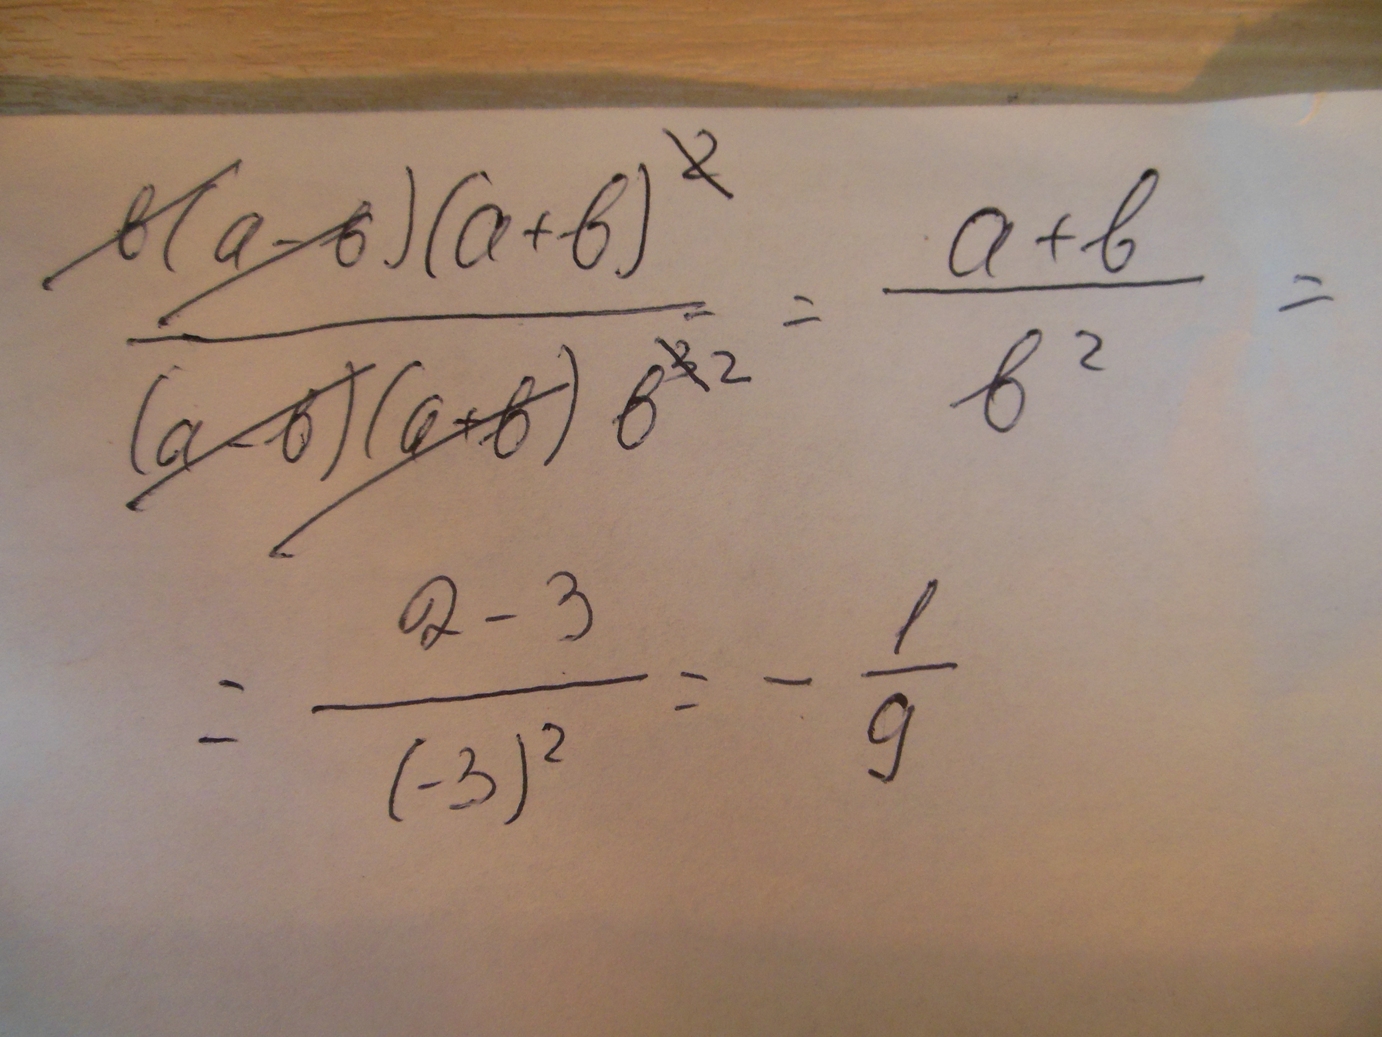 b(a-b)(a+b)² / (a-b)(a+b) b³ 2 = a+b / b² =
= 2-3 / (-3)² = - 1/9